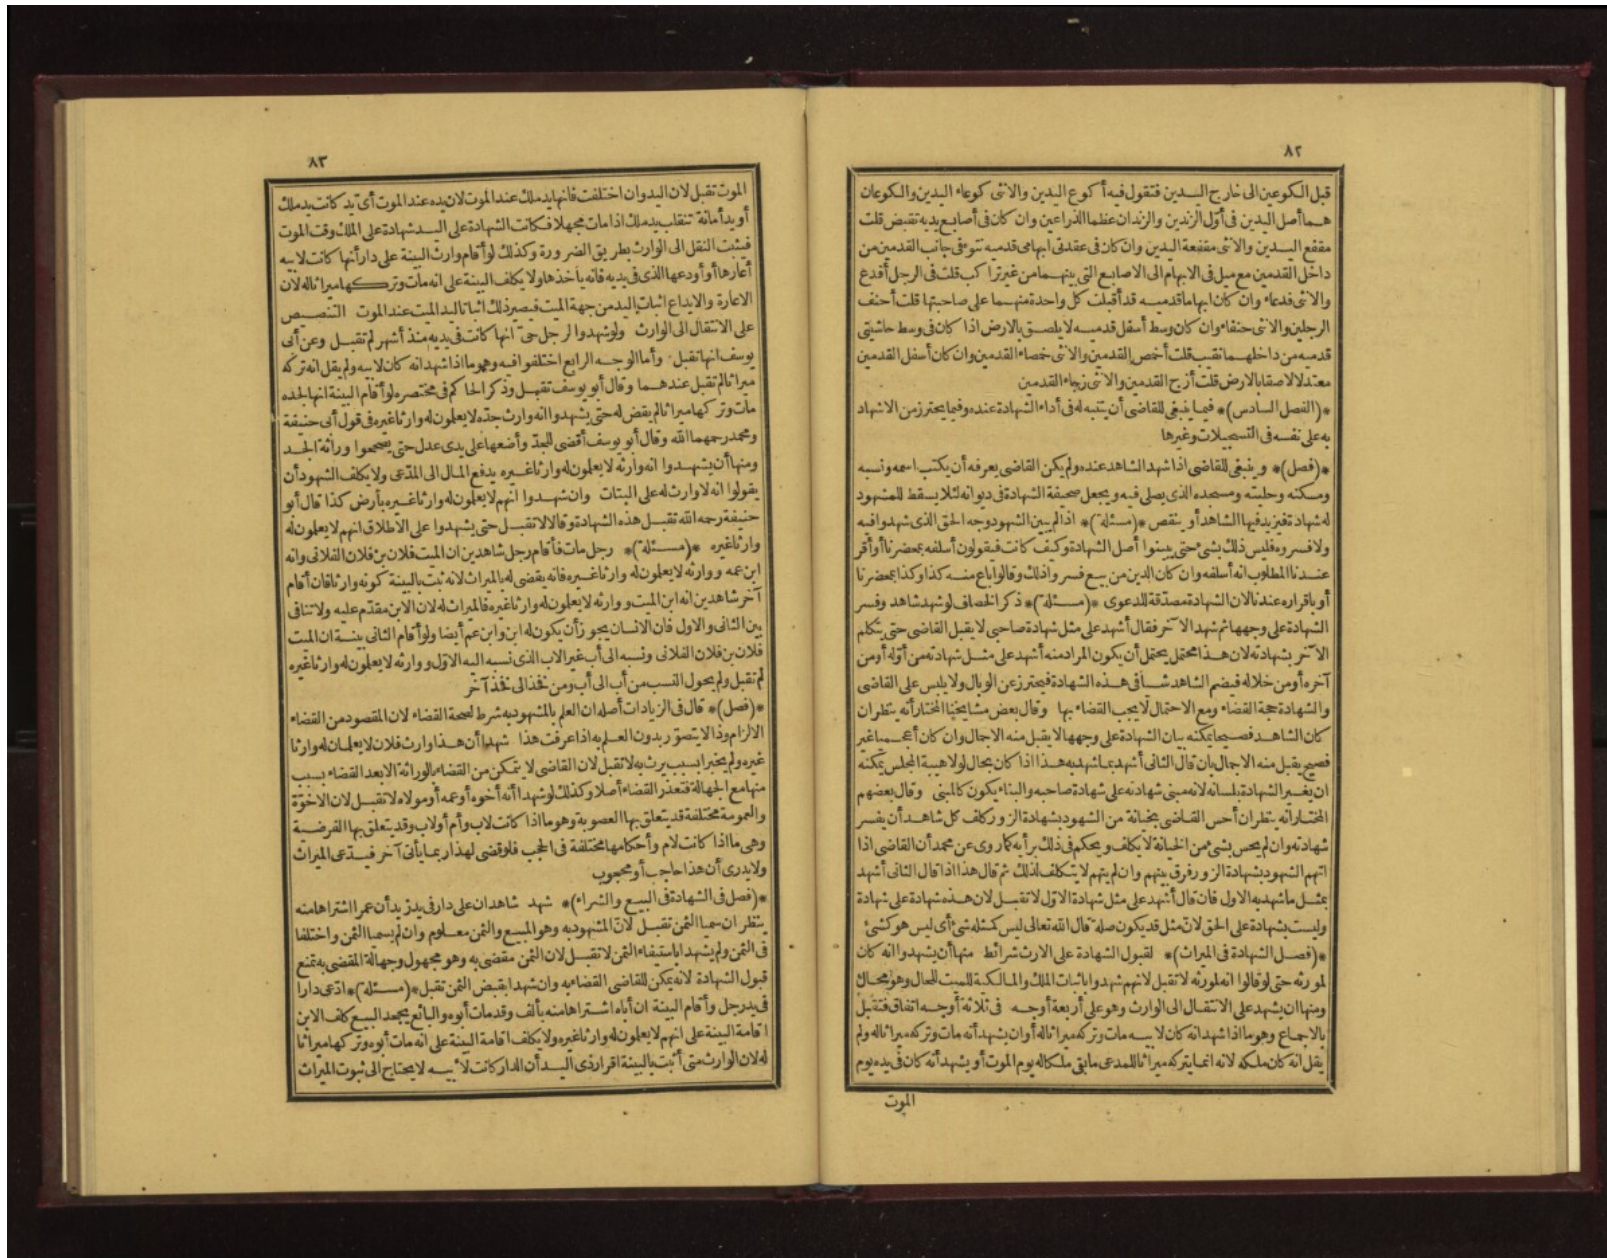 ٨٢
قبل الكوعين الى خارج اليدين فتقول فيه أكوع اليدين والانثى كوعاء اليدين والكوعان
هما أصل اليدين فى أوّل الزندين والزندان عظما الذراعين وان كان فى أصابع يديه تقبض قلت
مقفع اليدين والانثى مقفعة اليدين وان كان فى عقدتى ابهامى قدميه نتوء فى جانب القدمين من
داخل القدمين مع ميل فى الابهام الى الاصابع التى بينهما من غير تراكب قلت فى الرجل أفدع
والانثى فدعاء وان كان ابهاما قدميه قد أقبلت كل واحدة منهما على صاحبتها قلت أحنف
الرجلين والانثى حنفاء وان كان وسط أسفل قدميه لا يلصق بالارض اذا كان فى وسط حاشيتى
قدميه من داخلهما تقبيب قلت أخمص القدمين والانثى خمصاء القدمين وان كان أسفل القدمين
معتدلا لاصقا بالارض قلت أزج القدمين والانثى زجاء القدمين
*(الفصل السادس)* فيما ينبغى للقاضى أن يتنبه له فى أداء الشهادة عنده وفيما يحترز من الاشهاد
به على نفسه فى التسجيلات وغيرها
*(فصل)* وينبغى للقاضى اذا شهد الشاهد عنده ولم يكن القاضى يعرفه أن يكتب اسمه ونسبه
ومسكنه وحليته ومسجده الذى يصلى فيه ويجعل صحيفة الشهادة فى ديوانه لئلا يسقط للمشهود
له شهادة فيزيد فيها الشاهد أو ينقص *(مسئلة)* اذا لم يبين الشهود وجه الحق الذى شهدوا فيه
ولا فسروه فليس ذلك بشئ حتى يبينوا أصل الشهادة وكيف كانت فيقولون أسلفه بمحضرنا أو أقر
عندنا المطلوب انه أسلفه وان كان الدين من بيع فسر واذلك وقالوا باع منه كذا وكذا بمحضرنا
أو باقراره عندنا لان الشهادة مصدّقة للدعوى *(مسئلة)* ذكر الخصاف لو شهد شاهد وفسر
الشهادة على وجهها ثم شهد الآخر فقال أشهد على مثل شهادة صاحبى لا يقبل القاضى حتى يتكلم
الآخر بشهادته لان هذا محتمل يحتمل أن يكون المراد منه أشهد على مثل شهادته من أوّله أو من
آخره أو من خلاله فيضم الشاهد شيأ فى هذه الشهادة فيحترز عن الوبال ولا يلبس على القاضى
والشهادة حجة القضاء ومع الاحتمال لا يجب القضاء بها وقال بعض مشايخنا المختار أنه ينظر ان
كان الشاهد فصيحا يمكنه بيان الشهادة على وجهها لا يقبل منه الاجمال وان كان أعجميا غير
فصيح يقبل منه الاجمال بان قال الثانى أشهد بما شهد به هذا اذا كان بحال لولا هيبة المجلس يمكنه
ان يفسر الشهادة بلسانه لانه مبنى شهادته على شهادة صاحبه والبناء يكون كالمبنى وقال بعضهم
المختار أنه ينظر ان أحس القاضى بخيانة من الشهود بشهادة الزور كلف كل شاهد أن يفسر
شهادته وان لم يحس بشئ من الخيانة لا يكلف ويحكم فى ذلك برأيه كما روى عن محمد أن القاضى اذا
اتهم الشهود بشهادة الزور فرق بينهم وان لم يتهم لا يتكلف لذلك ثم قال هذا اذا قال الثانى أشهد
بمثل ما شهد به الاول فان قال أشهد على مثل شهادة الاوّل لا تقبل لان هذه شهادة على شهادة
وليست بشهادة على الحق لانّ مثل قد يكون صلة قال الله تعالى ليس كمثله شئ أى ليس هو كشئ
*(فصل الشهادة فى الميراث)* لقبول الشهادة على الارث شرائط منها أن يشهدوا انه كان
لمورثه حتى لو قالوا انه لمورثه لا تقبل لانهم شهدوا باثبات الملك والمالكية للميت للحال وهو محال
ومنها ان يشهد على الانتقال الى الوارث وهو على أربعة أوجه فى ثلاثة أوجه اتفاق فتقبل
بالاجماع وهو ما اذا شهد انه كان لابيه مات وتركه ميراثا له أو ان يشهد أنه مات وتركه ميراثا له ولم
يقل انه كان ملكه لانه انما يتركه ميراثا للمدعى ما بقى ملكا له يوم الموت أو يشهد أنه كان فى يده يوم
الموت
٨٣
الموت تقبل لان اليد وان اختلفت فانها يد ملك عند الموت لان يده عند الموت أى يد كانت يد ملك
أو يد أمانة تنقلب يد ملك اذا مات مجهلا فكانت الشهادة على اليد شهادة على الملك وقت الموت
فيثبت النقل الى الوارث بطريق الضرورة وكذلك لو أقام وارث البينة على دار أنها كانت لابيه
أعارها أو أودعها الذى فى يديه فانه يأخذها ولا يكلف البينة على انه مات وتركها ميراثا له لان
الاعارة والايداع اثبات اليد من جهة الميت فيصير ذلك اثباتا ليد الميت عند الموت التنصيص
على الانتقال الى الوارث ولو شهدوا لرجل حىّ انها كانت فى يديه منذ أشهر لم تقبل وعن أبى
يوسف انها تقبل وأما الوجه الرابع اختلفوا فيه وهو ما اذا شهد انه كان لابيه ولم يقل انه تركه
ميراثا لم تقبل عندهما وقال أبو يوسف تقبل وذكر الحاكم فى مختصره لو أقام البينة انها لجده
مات وتركها ميراثا لم يقض له حتى يشهدوا انه وارث جدّه لا يعلمون له وارثا غيره فى قول أبى حنيفة
ومحمد رحمهما الله وقال أبو يوسف أقضى للجدّ وأضعها على يدى عدل حتى يصححوا وراثة الجد
ومنها أن يشهدوا انه وارثه لا يعلمون له وارثا غيره يدفع المال الى المدّعى ولا يكلف الشهود أن
يقولوا انه لا وارث له على البتات وان شهدوا انهم لا يعلمون له وارثا غيره بأرض كذا قال أبو
حنيفة رحمه الله تقبل هذه الشهادة وقالا لا تقبل حتى يشهدوا على الاطلاق انهم لا يعلمون له
وارثا غيره *(مسئلة)* رجل مات فأقام رجل شاهدين ان الميت فلان بن فلان الفلانى وانه
ابن عمه ووارثه لا يعلمون له وارثا غيره فانه يقضى له بالميراث لانه ثبت بالبينة كونه وارثا فان أقام
آخر شاهدين انه ابن الميت ووارثه لا يعلمون له وارثا غيره فالميراث له لان الابن مقدّم عليه ولا تنافى
بين الثانى والاول فان الانسان يجوز أن يكون له ابن وابن عم أيضا ولو أقام الثانى بينة ان الميت
فلان بن فلان الفلانى ونسبه الى أب غير الاب الذى نسبه اليه الاوّل ووارثه لا يعلمون له وارثا غيره
لم تقبل ولم يحول النسب من أب الى أب ومن فخذ الى فخذ آخر
*(فصل)* قال فى الزيادات أصله ان العلم بالمشهود به شرط لصحة القضاء لان المقصود من القضاء
الالزام وذا لا يتصوّر بدون العلم به اذا عرفت هذا شهدا أن هذا وارث فلان لا يعلمان له وارثا
غيره ولم يخبرا بسبب يرث به لا تقبل لان القاضى لا يتمكن من القضاء بالوراثة الا بعد القضاء بسبب
منها مع الجهالة فتعذر القضاء أصلا وكذلك لو شهدا أنه أخوه أو عمه أو مولاه لا تقبل لان الاخوّة
والعمومة مختلفة قد يتعلق بها العصوبة وهو ما اذا كانت لاب وأم أو لاب وقد يتعلق بها الفرضية
وهى ما اذا كانت لام وأحكامها مختلفة فى الحجب فلو قضى لهذا ربما يأتى آخر فيدّعى الميراث
ولا يدرى أن هذا حاجب أو محجوب
*(فصل فى الشهادة فى البيع والشراء)* شهد شاهدان على دار فى يد زيد أن عمرا اشتراها منه
ينظر ان سميا الثمن تقبل لانّ المشهود به وهو المبيع والثمن معلوم وان لم يسميا الثمن واختلفا
فى الثمن ولم يشهدا باستيفاء الثمن لا تقبل لان الثمن مقضى به وهو مجهول وجهالة المقضى به تمنع
قبول الشهادة لانه يمكن للقاضى القضاء به وان شهدا بقبض الثمن تقبل *(مسئلة)* ادّعى دارا
فى يد رجل وأقام البينة ان أباه اشتراها منه بألف وقد مات أبوه والبائع يجحد البيع كلف الابن
اقامة البينة على انهم لا يعلمون له وارثا غيره ولا يكلف اقامة البينة على انه مات أبوه وتركها ميراثا
له لان الوارث متى أثبت بالبينة اقرار ذى اليد أن الدار كانت لابيه لا يحتاج الى ثبوت الميراث